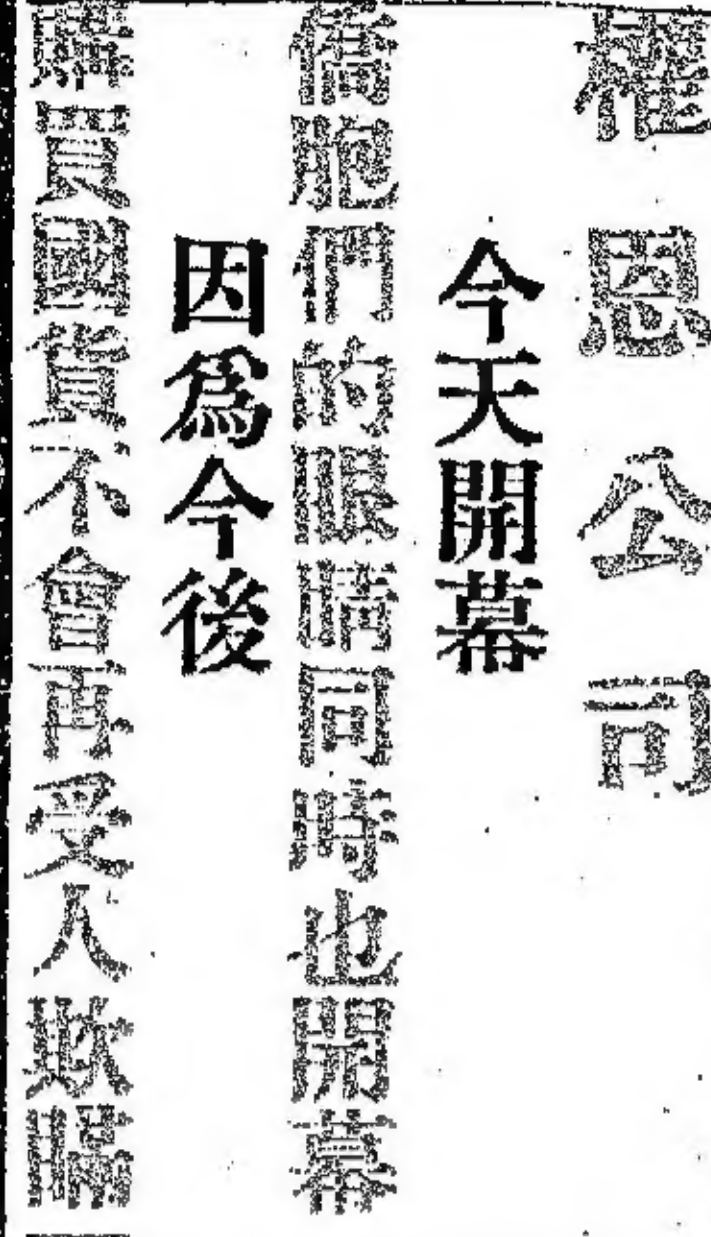 權恩公司
今天開幕
僑胞們的眼睛同時也開幕
因爲今後
購買國貨不會再受人欺騙